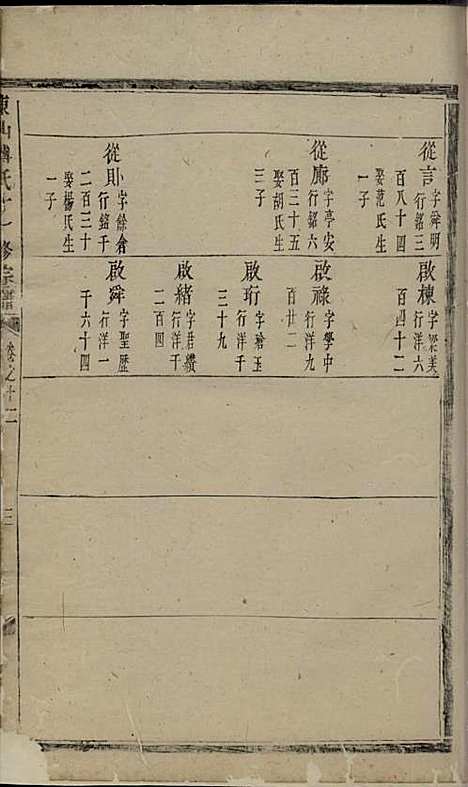 從言 字舜明
行銘三
百八十四
娶范氏生
一子
從廊 字亭安
行銘六
百三十五
娶胡氏生
三子
從則 字餘倉
行銘千
二百三十
娶楊氏生
一子
啟棟 字梁美
行洋六
百四十二
啟祿 字學中
行洋九
百廿二
啟珩 字瑲玉
行洋千
三十九
啟緒 字君纘
行洋千
二百四
啟舜 字聖歷
行洋一
千六十四
東山傅氏十一修宗譜
卷之十二
三